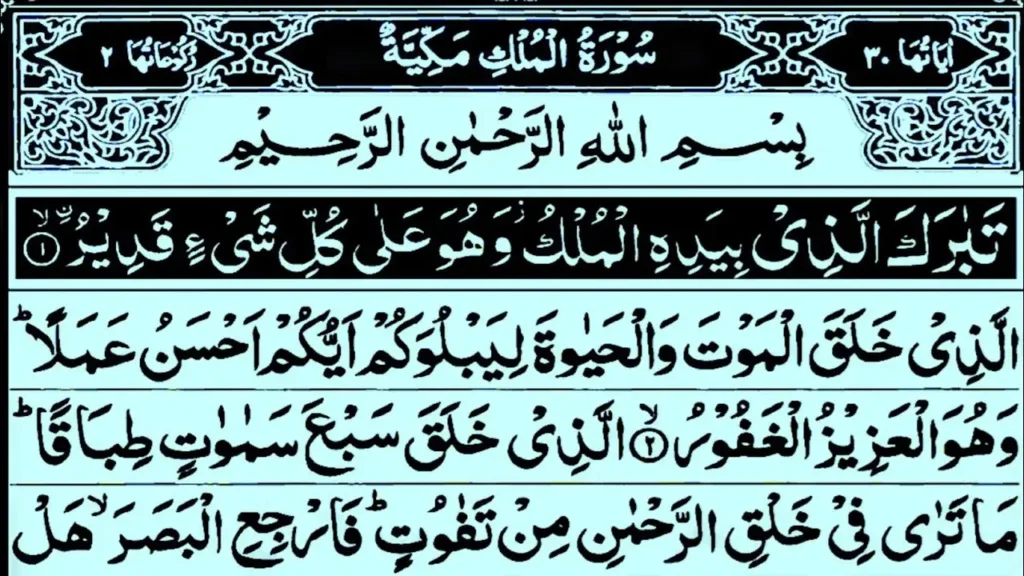 اٰيَاتُهَا ٣٠ سُوْرَةُ الْمُلْكِ مَكِّيَّةٌ رُكُوْعَاتُهَا ٢
بِسْمِ اللهِ الرَّحْمٰنِ الرَّحِيْمِ
تَبٰرَكَ الَّذِىْ بِيَدِهِ الْمُلْكُ ز وَهُوَ عَلٰى كُلِّ شَىْءٍ قَدِيْرُۨ ۙ ١
الَّذِىْ خَلَقَ الْمَوْتَ وَالْحَيٰوةَ لِيَبْلُوَكُمْ اَيُّكُمْ اَحْسَنُ عَمَلًا ؕ
وَهُوَ الْعَزِيْزُ الْغَفُوْرُ ۙ ٢ الَّذِىْ خَلَقَ سَبْعَ سَمٰوٰتٍ طِبَاقًا ؕ
مَا تَرٰى فِىْ خَلْقِ الرَّحْمٰنِ مِنْ تَفٰوُتٍ ؕ فَارْجِعِ الْبَصَرَ ۙ هَلْ